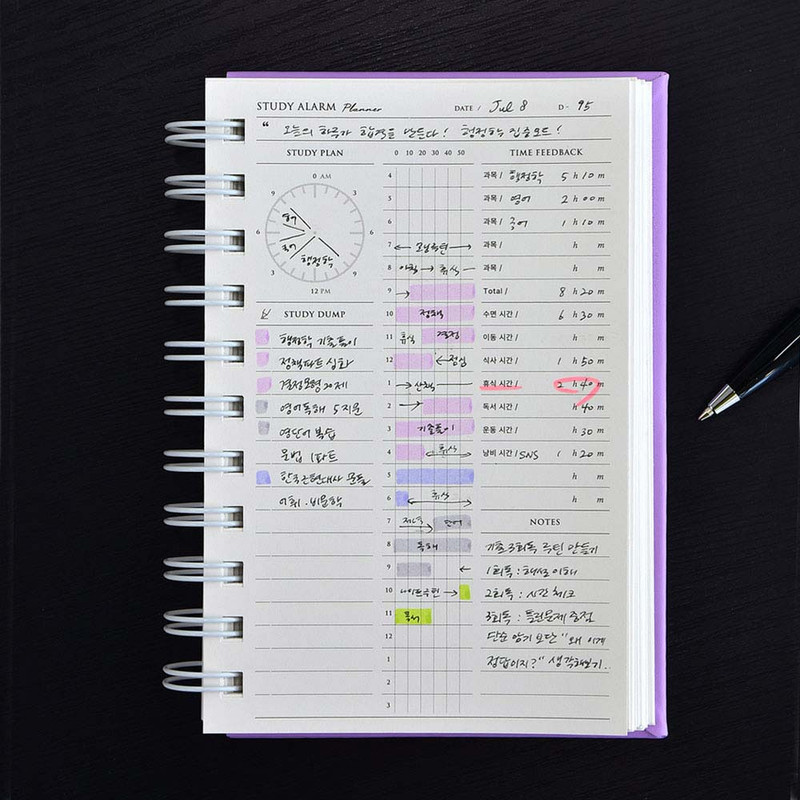 STUDY ALARM Planner DATE / Jul 8 D - 95
“ 오늘의 하루가 합격을 만든다! 행정학 집중모드!
STUDY PLAN
0 AM
9 3
6 6
3 9
12 PM
영어
국어
행정학
STUDY DUMP
행정학 기출풀이
정책파트 심화
결정모형 20제
영어독해 5지문
영단어 복습
문법 1파트
한국근현대사 문풀
어휘·비문학
0 10 20 30 40 50
4
5
6
7 모닝루틴
8 아침 → 휴식
9 →
10 정책
11 휴식 결정
12 ← 점심
1 → 산책
2 →
3 기출풀이
4 휴식
5
6 휴식
7 저녁 단어
8 독해
9 ←
10 나이트루틴 →
11 독서
12
1
2
3
TIME FEEDBACK
과목 / 행정학 5 h 10 m
과목 / 영어 2 h 00 m
과목 / 국어 1 h 10 m
과목 / h m
과목 / h m
Total / 8 h 20 m
수면 시간 / 6 h 30 m
이동 시간 / h m
식사 시간 / 1 h 50 m
휴식 시간 / 2 h 40 m
독서 시간 / h 40 m
운동 시간 / h 30 m
낭비 시간 / SNS 1 h 20 m
h m
h m
NOTES
기출 3회독 루틴 만들기
1회독 : 해설 이해
2회독 : 시간 체크
3회독 : 틀린문제 중점
단순 암기 보단 “왜 이게
정답이지?” 생각해보기..